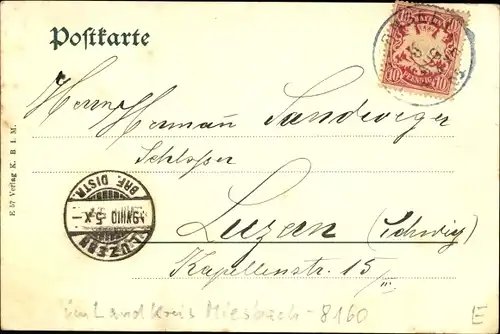 Postkarte
BAYERN
10 PFENNIG 10
Herrn Hermann Sandweger
Schlosser
Luzern (Schweiz)
Kapellenstr. 15/III
E 57 Verlag K. B. I. M.
BRF. DISTR.
LUZERN
im Landkreis Miesbach - 8160
E